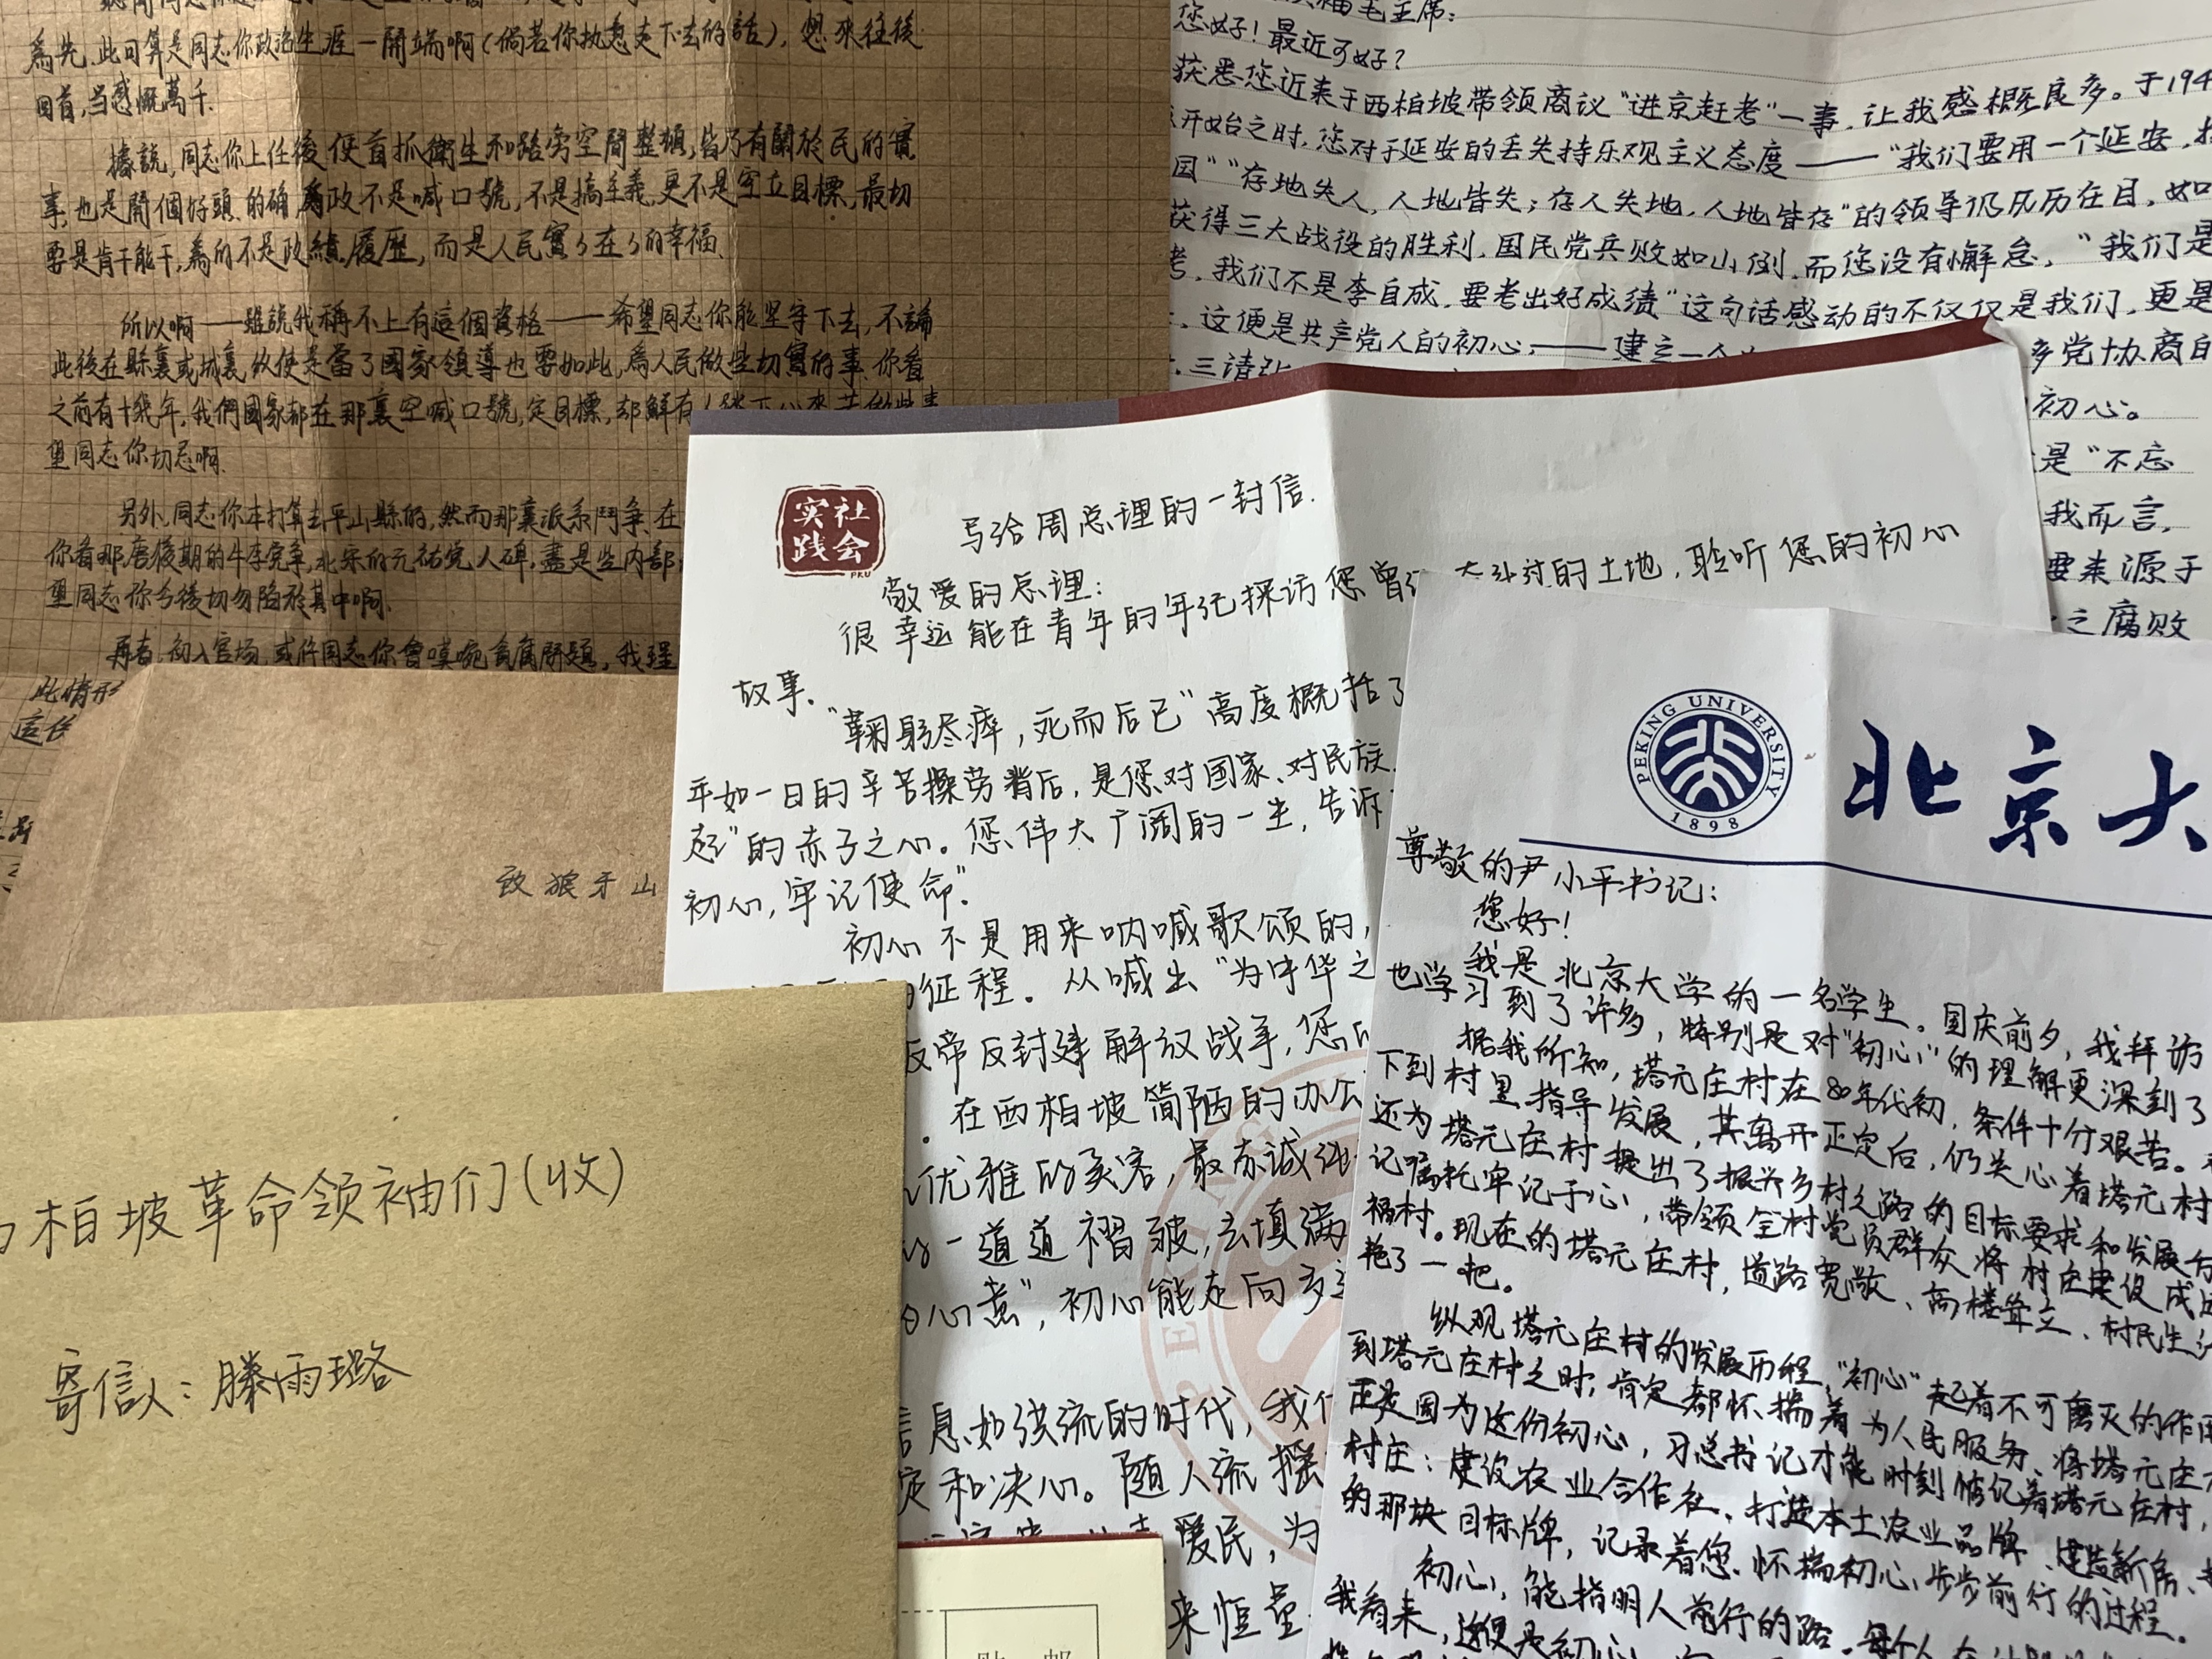 為先,此日算是同志你政治生涯一開端啊(倘若你执意走下去的話),想來往後
回首,当感慨萬千.
據說,同志你上任後便首抓衛生和路旁空間整頓,皆乃有關於民的實
事,也是開個好頭.的确,為政不是喊口號,不是搞主義,更不是空立目標,最切
要是肯干能干,為的不是政績履歷,而是人民實實在在的幸福.
所以啊——雖說我稱不上有這個資格——希望同志你能坚守下去,不論
此後在縣裏或城裏,纵使是當了國家領導也要如此,為人民做些切實的事.你看
之前有十幾年,我們國家都在那裏空喊口號,定目標,却鮮有人
望同志你切忌啊.
另外,同志你本打算去平山縣的,然而那裏派系鬥争,在
你看那唐後期的牛李党争,北宋的元祐党人碑,盡是些内部
望同志你今後切勿陷於其中啊.
再者,初入官场,或许同志你會
此情形
致狼牙山
西柏坡革命领袖们(收)
寄信人:滕雨璐
毛主席:
您好!最近可好?
获悉您近来于西柏坡带领商议“进京赶考”一事,让我感概良多。于194
开始之时,您对于延安的丢失持乐观主义态度——“我们要用一个延安,
国”“存地失人,人地皆失;存人失地,人地皆存”的领导仍历历在目,如
获得三大战役的胜利,国民党兵败如山倒,而您没有懈怠,“我们是
考,我们不是李自成,要考出好成绩”这句话感动的不仅仅是我们,更是
,这便是共产党人的初心,——建立一个
多党协商的
三请
初心。
是“不忘
我而言,
要来源于
之腐败
实社
践会
PKU
写给周总理的一封信.
敬爱的总理:
很幸运能在青年的年纪探访您曾 大斗过的土地,聆听您的初心
故事.
“鞠躬尽瘁,死而后已”高度概括了
年如一日的辛苦操劳背后,是您对国家、对民族
起”的赤子之心。您伟大广阔的一生,告诉
初心,牢记使命”.
初心不是用来呐喊歌颂的,
征程。从喊出“为中华之
反帝反封建解放战争,您
.在西柏坡简陋的办公
优雅的笑容,最赤诚
一道道褶皱,去填满
心意”,初心能走向
信息如洪流的时代,我们
定和决心。随人流摇
爱民,为
来恒量
贴 邮
PEKING UNIVERSITY
1898
北京大
尊敬的尹小平书记:
您好!
我是北京大学的一名学生。国庆前夕,我拜访
也学习到了许多,特别是对“初心”的理解更深刻了
据我所知,塔元庄村在80年代初,条件十分艰苦。
下到村里指导发展,其离开正定后,仍关心着塔元村
还为塔元庄村提出了振兴乡村之路的目标要求和发展
记嘱托牢记于心,带领全村党员群众将村庄建设成
福村。现在的塔元庄村,道路宽敞、高楼耸立、村民生
艳了一把。
纵观塔元庄村的发展历程,“初心”起着不可磨灭的作用
到塔元庄村之时,肯定都怀揣着为人民服务、将塔元庄
正是因为这份初心,习总书记才能时刻惦记着塔元庄村,
村庄:建设农业合作社、打造本土农业品牌、建造新房、
的那块目标牌,记录着您怀揣初心、步步前行的过程。
初心,能指明人前行的路。每个人在
我看来,这便是初心